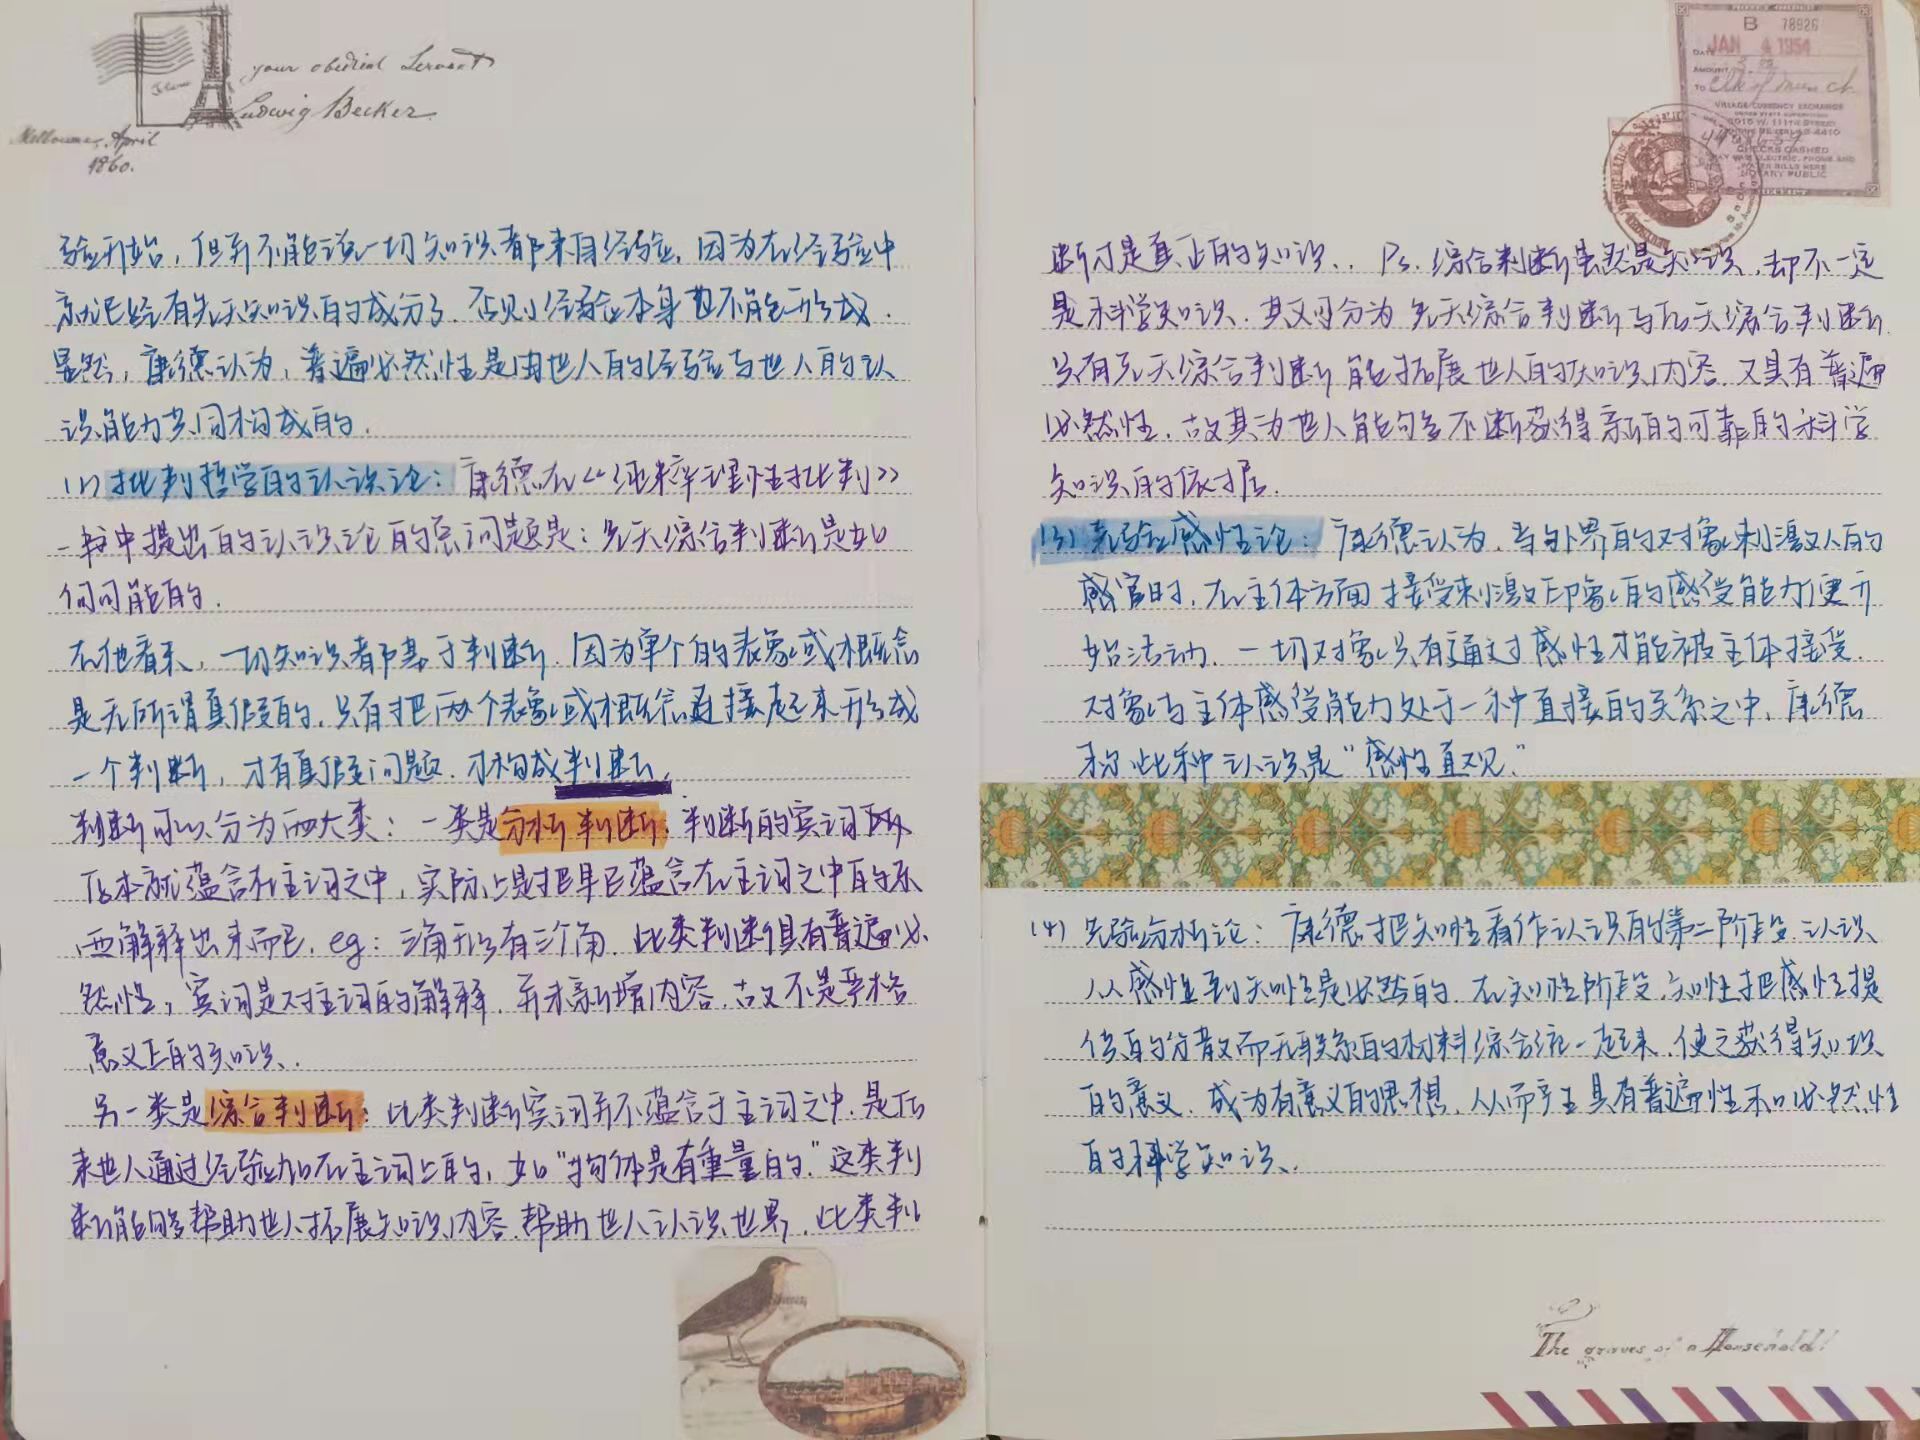 your obedient Servant
Ludwig Becker
Melbourne, April
1860.
验开始，但并不能说一切知识都来自经验，因为在经验中
就已经有先天知识的成分了，否则经验本身也不能形成．
显然，康德认为，普遍必然性是由世人的经验与世人的认
识能力共同构成的．
(2) 批判哲学的认识论：康德在《纯粹理性批判》
一书中提出的认识论的总问题是：先天综合判断是如
何可能的．
在他看来，一切知识都基于判断．因为单个的表象或概念
是无所谓真假的，只有把两个表象或概念连接起来形成
一个判断，才有真假问题．才构成判断．
判断可以分为两大类：一类是分析判断：判断的宾词
原本就蕴含在主词之中，实际上是把早已蕴含在主词之中的东
西解释出来而已．eg：三角形有三个角．此类判断具有普遍必
然性，宾词是对主词的解释．并未新增内容．故不是严格
意义上的知识．
另一类是综合判断：此类判断宾词并不蕴含于主词之中．是后
来世人通过经验加在主词上的，如"物体是有重量的."这类判
断能够帮助世人拓展知识内容．帮助世人认识世界．此类判
B 78926
DATE JAN 4 1954
AMOUNT
TO
VILLAGE CURRENCY EXCHANGE
CHECKS CASHED
NOTARY PUBLIC
断才是真正的知识．Ps. 综合判断虽然是知识，却不一定
是科学知识．其又可分为 先天综合判断与后天综合判断．
只有先天综合判断能拓展世人的知识内容．又具有普遍
必然性．故其为世人能够不断获得新的可靠的科学
知识的依据．
(3) 先验感性论：康德认为，当外界的对象刺激人的
感官时，在主体方面接受刺激印象的感受能力便开
始活动．一切对象只有通过感性才能被主体接受．
对象与主体感受能力处于一种直接的关系之中，康德
称此种认识是"感性直观"
(4) 先验分析论：康德把知性看作认识的第二阶段．认识
从感性到知性是必然的．在知性阶段．知性把感性提
供的分散而无联系的材料综合统一起来．使之获得知识
的意义．成为有意义的思想．从而产生具有普遍性和必然性
的科学知识．
The graves of a Household!